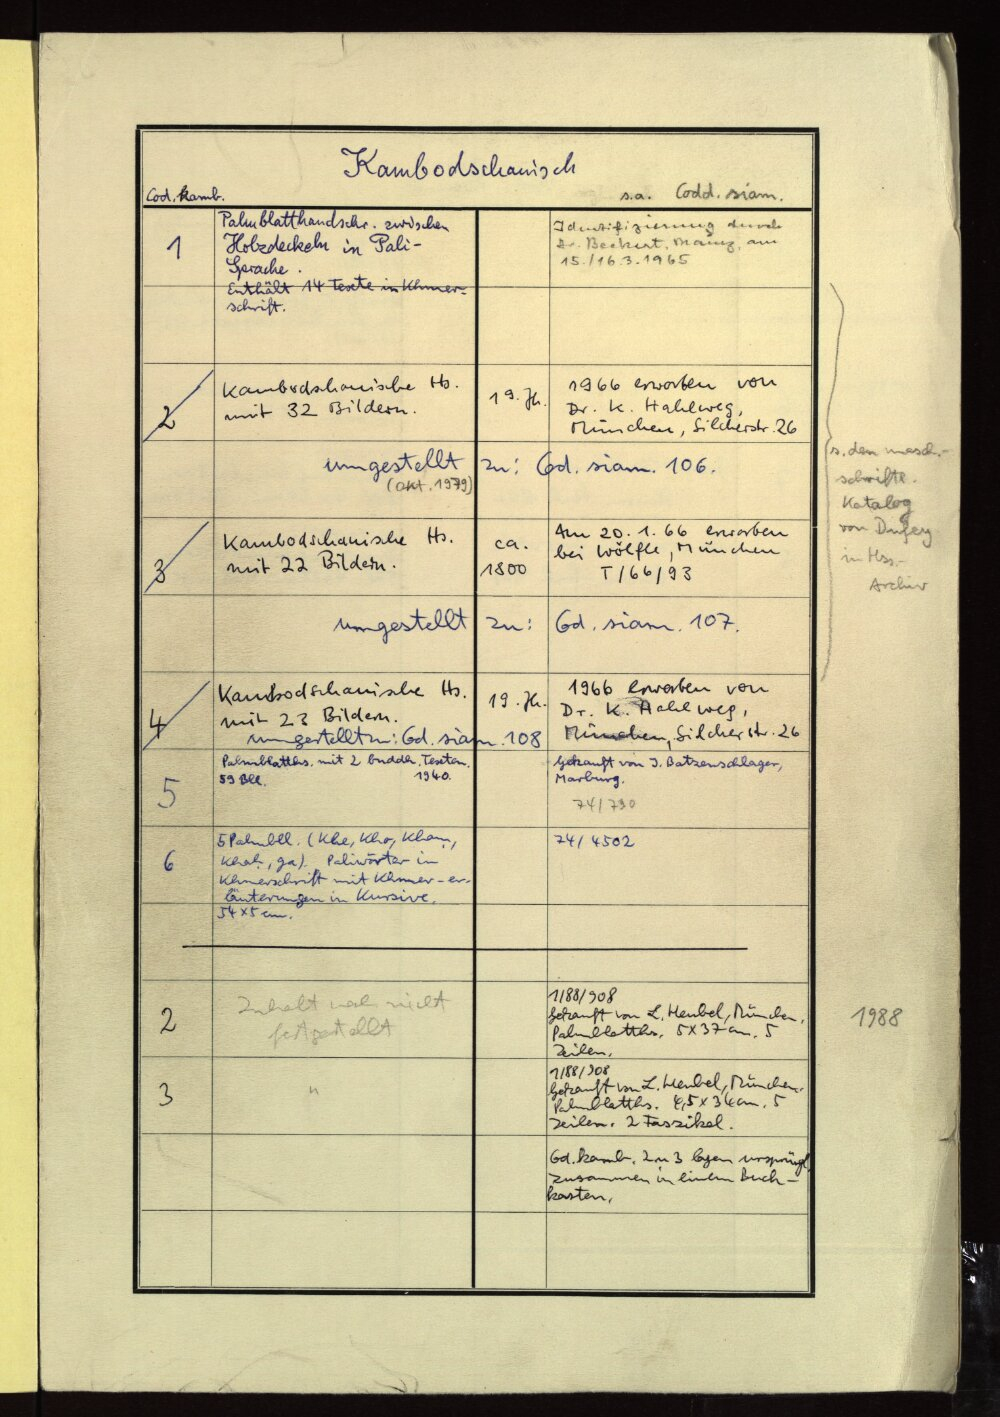 Kambodschanisch
Cod. kamb.
s.a. Codd. siam.
1
Palmblatthandschr. zwischen
Holzdeckeln in Pali-
Sprache.
Enthält 14 Texte in Khmer-
schrift.
Identifizierung durch
Dr. Bechert, Mainz, am
15./16.3.1965
2
Kambodschanische Hs.
mit 32 Bildern.
19. Jh.
1966 erworben von
Dr. K. Hahlweg,
München, Silcherstr. 26
umgestellt zu: Cod. siam. 106.
(Okt. 1979)
s. den masch.-
schriftl.
Katalog
von
in Hss.-
Archiv
3
Kambodschanische Hs.
mit 22 Bildern.
ca.
1800
Am 20. 1. 66 erworben
bei Wölfle, München
T/66/93
umgestellt zu: Cod. siam. 107.
4
Kambodschanische Hs.
mit 23 Bildern.
19. Jh.
1966 erworben von
Dr. K. Hahlweg,
München, Silcherstr. 26
umgestellt zu: Cod. siam. 108
5
Palmblatths. mit 2 buddh. Texten.
59 Bll. 1940.
Gekauft von J. Batzenschlager,
Marburg.
74/790
6
5 Palmbll. (Khe, Kho, Khaṃ,
Khaḥ, ga). Paliwörter in
Khmerschrift mit Khmer-er-
läuterungen in Kursive.
54 x 5 cm.
74/4502
2
Inhalt noch nicht
festgestellt
1/88/908
Gekauft von L. Heubel, München.
Palmblatths. 5 x 37 cm. 5
Zeilen.
1988
3
"
1/88/908
Gekauft von L. Heubel, München.
Palmblatths. 4,5 x 34 cm. 5
Zeilen. 2 Faszikel.
Cod. kamb. 2 u 3 lagen ursprüngl.
zusammen in einem Buch-
kasten.